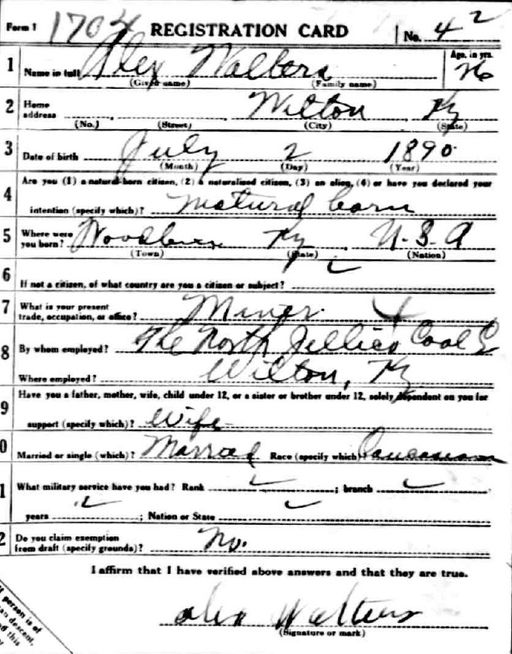 Form 1 1704 REGISTRATION CARD No. 42
1 Name in full Alex Walters Age, in yrs. 26
(Given name) (Family name)
2 Home address Wilton Ky
(No.) (Street) (City) (State)
3 Date of birth July 2 1890
(Month) (Day) (Year)
Are you (1) a natural-born citizen, (2) a naturalized citizen, (3) an alien, (4) or have you declared your
4 intention (specify which)? natural born
5 Where were you born? Woodburn Ky U.S.A
(Town) (State) (Nation)
6 If not a citizen, of what country are you a citizen or subject?
7 What is your present trade, occupation, or office? Miner
8 By whom employed? The North Jellico Coal Co
Where employed? Wilton, Ky
9 Have you a father, mother, wife, child under 12, or a sister or brother under 12, solely dependent on you for
support (specify which)? Wife
0 Married or single (which)? Married Race (specify which) Caucasian
1 What military service have you had? Rank ; branch
years ; Nation or State
2 Do you claim exemption from draft (specify grounds)? No.
I affirm that I have verified above answers and that they are true.
Alex Walters
(Signature or mark)
person is of
an descent,
off this